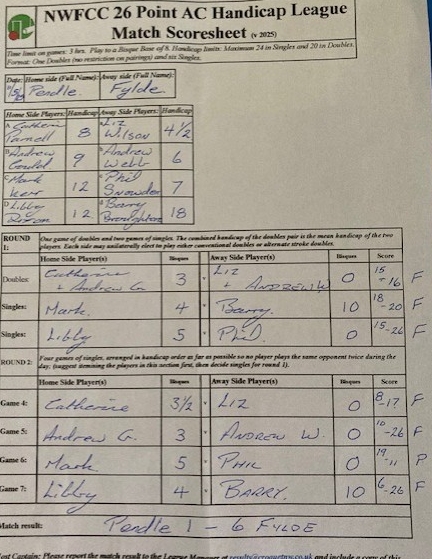 NWFCC 26 Point AC Handicap League
Match Scoresheet (v 2025)
Time limit on games: 3 hrs. Play to a Bisque Base of 8. Handicap limits: Maximum 24 in Singles and 20 in Doubles.
Format: One Doubles (no restriction on pairings) and six Singles.
Date: Home side (Full Name): Away side (Full Name):
Pendle Fylde
Home Side Players: Handicap Away Side Players: Handicap
A Catherine 8 Liz Wilson 4½
B Andrew 9 Andrew Webb 6
C Mark Kerr 12 Phil Snowden 7
D Libby Dixon 12 d Barry Broughton 18
ROUND 1: One game of doubles and two games of singles. The combined handicap of the doubles pair is the mean handicap of the two players. Each side may unilaterally elect to play either conventional doubles or alternate stroke doubles.
Home Side Player(s) Bisques Away Side Player(s) Bisques Score
Doubles: Catherine + Andrew G. 3 v Liz + ANDREW W 0 15 - 16 F
Singles: Mark. 4 v Barry. 10 18 - 20 F
Singles: Libby 5 v Phil. 0 15 - 26 F
ROUND 2: Four games of singles, arranged in handicap order as far as possible so no player plays the same opponent twice during the day. (suggest stemming the players in this section first, then decide singles for round 1).
Home Side Player(s) Bisques Away Side Player(s) Bisques Score
Game 4: Catherine 3½ v LIZ 0 8 - 17 F
Game 5: Andrew G. 3 v ANDREW W. 0 10 - 26 F
Game 6: Mark 5 v PHIL 0 19 - 11 P
Game 7: Libby 4 v BARRY. 10 6 - 26 F
Match result: Pendle 1 - 6 FYLDE
Captain: Please report the match result to the League Manager at